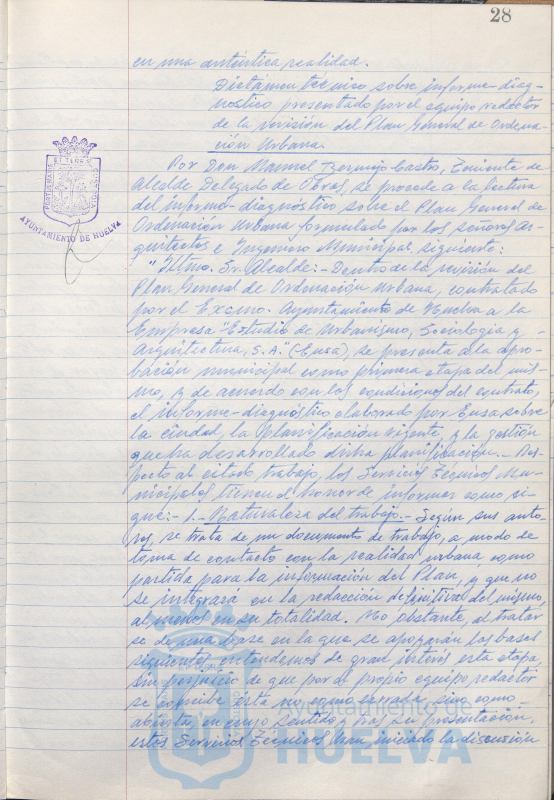 28
en una auténtica realidad.
Dictámen técnico sobre informe-diag-
nóstico presentado por el equipo redactor
de la revisión del Plan General de Ordena-
ción Urbana.
Por Don Manuel Bermejo Castro, Teniente de
Alcalde Delegado de Obras, se procede a la lectura
del informe-diagnóstico sobre el Plan General de
Ordenación Urbana formulado por los señores Ar-
quitectos e Ingeniero Municipal, siguiente:
"Iltmo. Sr. Alcalde:- Dentro de la revisión del
Plan General de Ordenación Urbana, contratado
por el Excmo. Ayuntamiento de Huelva a la
Empresa "Estudio de Urbanismo, Sociología y
Arquitectura, S.A." (Eusa), se presenta a la apro-
bación municipal como primera etapa del mis-
mo, y de acuerdo con las condiciones del contrato,
el informe-diagnóstico elaborado por Eusa sobre
la ciudad, la planificación vigente, y la gestión
que ha desarrollado dicha planificación.- Res-
pecto al citado trabajo, los Servicios Técnicos Mu-
nicipales tienen el honor de informar como si-
gue:- 1.- Naturaleza del trabajo.- Según sus auto-
res, se trata de un documento de trabajo, a modo de
toma de contacto con la realidad urbana, como
partida para la información del Plan, y que no
se integrará en la redacción definitiva del mismo,
al menos en su totalidad. No obstante, al tratar
se de una base en la que se apoyarán las bases
siguientes, entendemos de gran interés esta etapa,
sin perjuicio de que por el propio equipo redactor
se concibe ésta no como cerrada sino como
abierta, en cuyo sentido y tras su presentación,
estos Servicios Técnicos han iniciado la discusión
AYUNTAMIENTO DE HUELVA
Ayuntamiento de
HUELVA